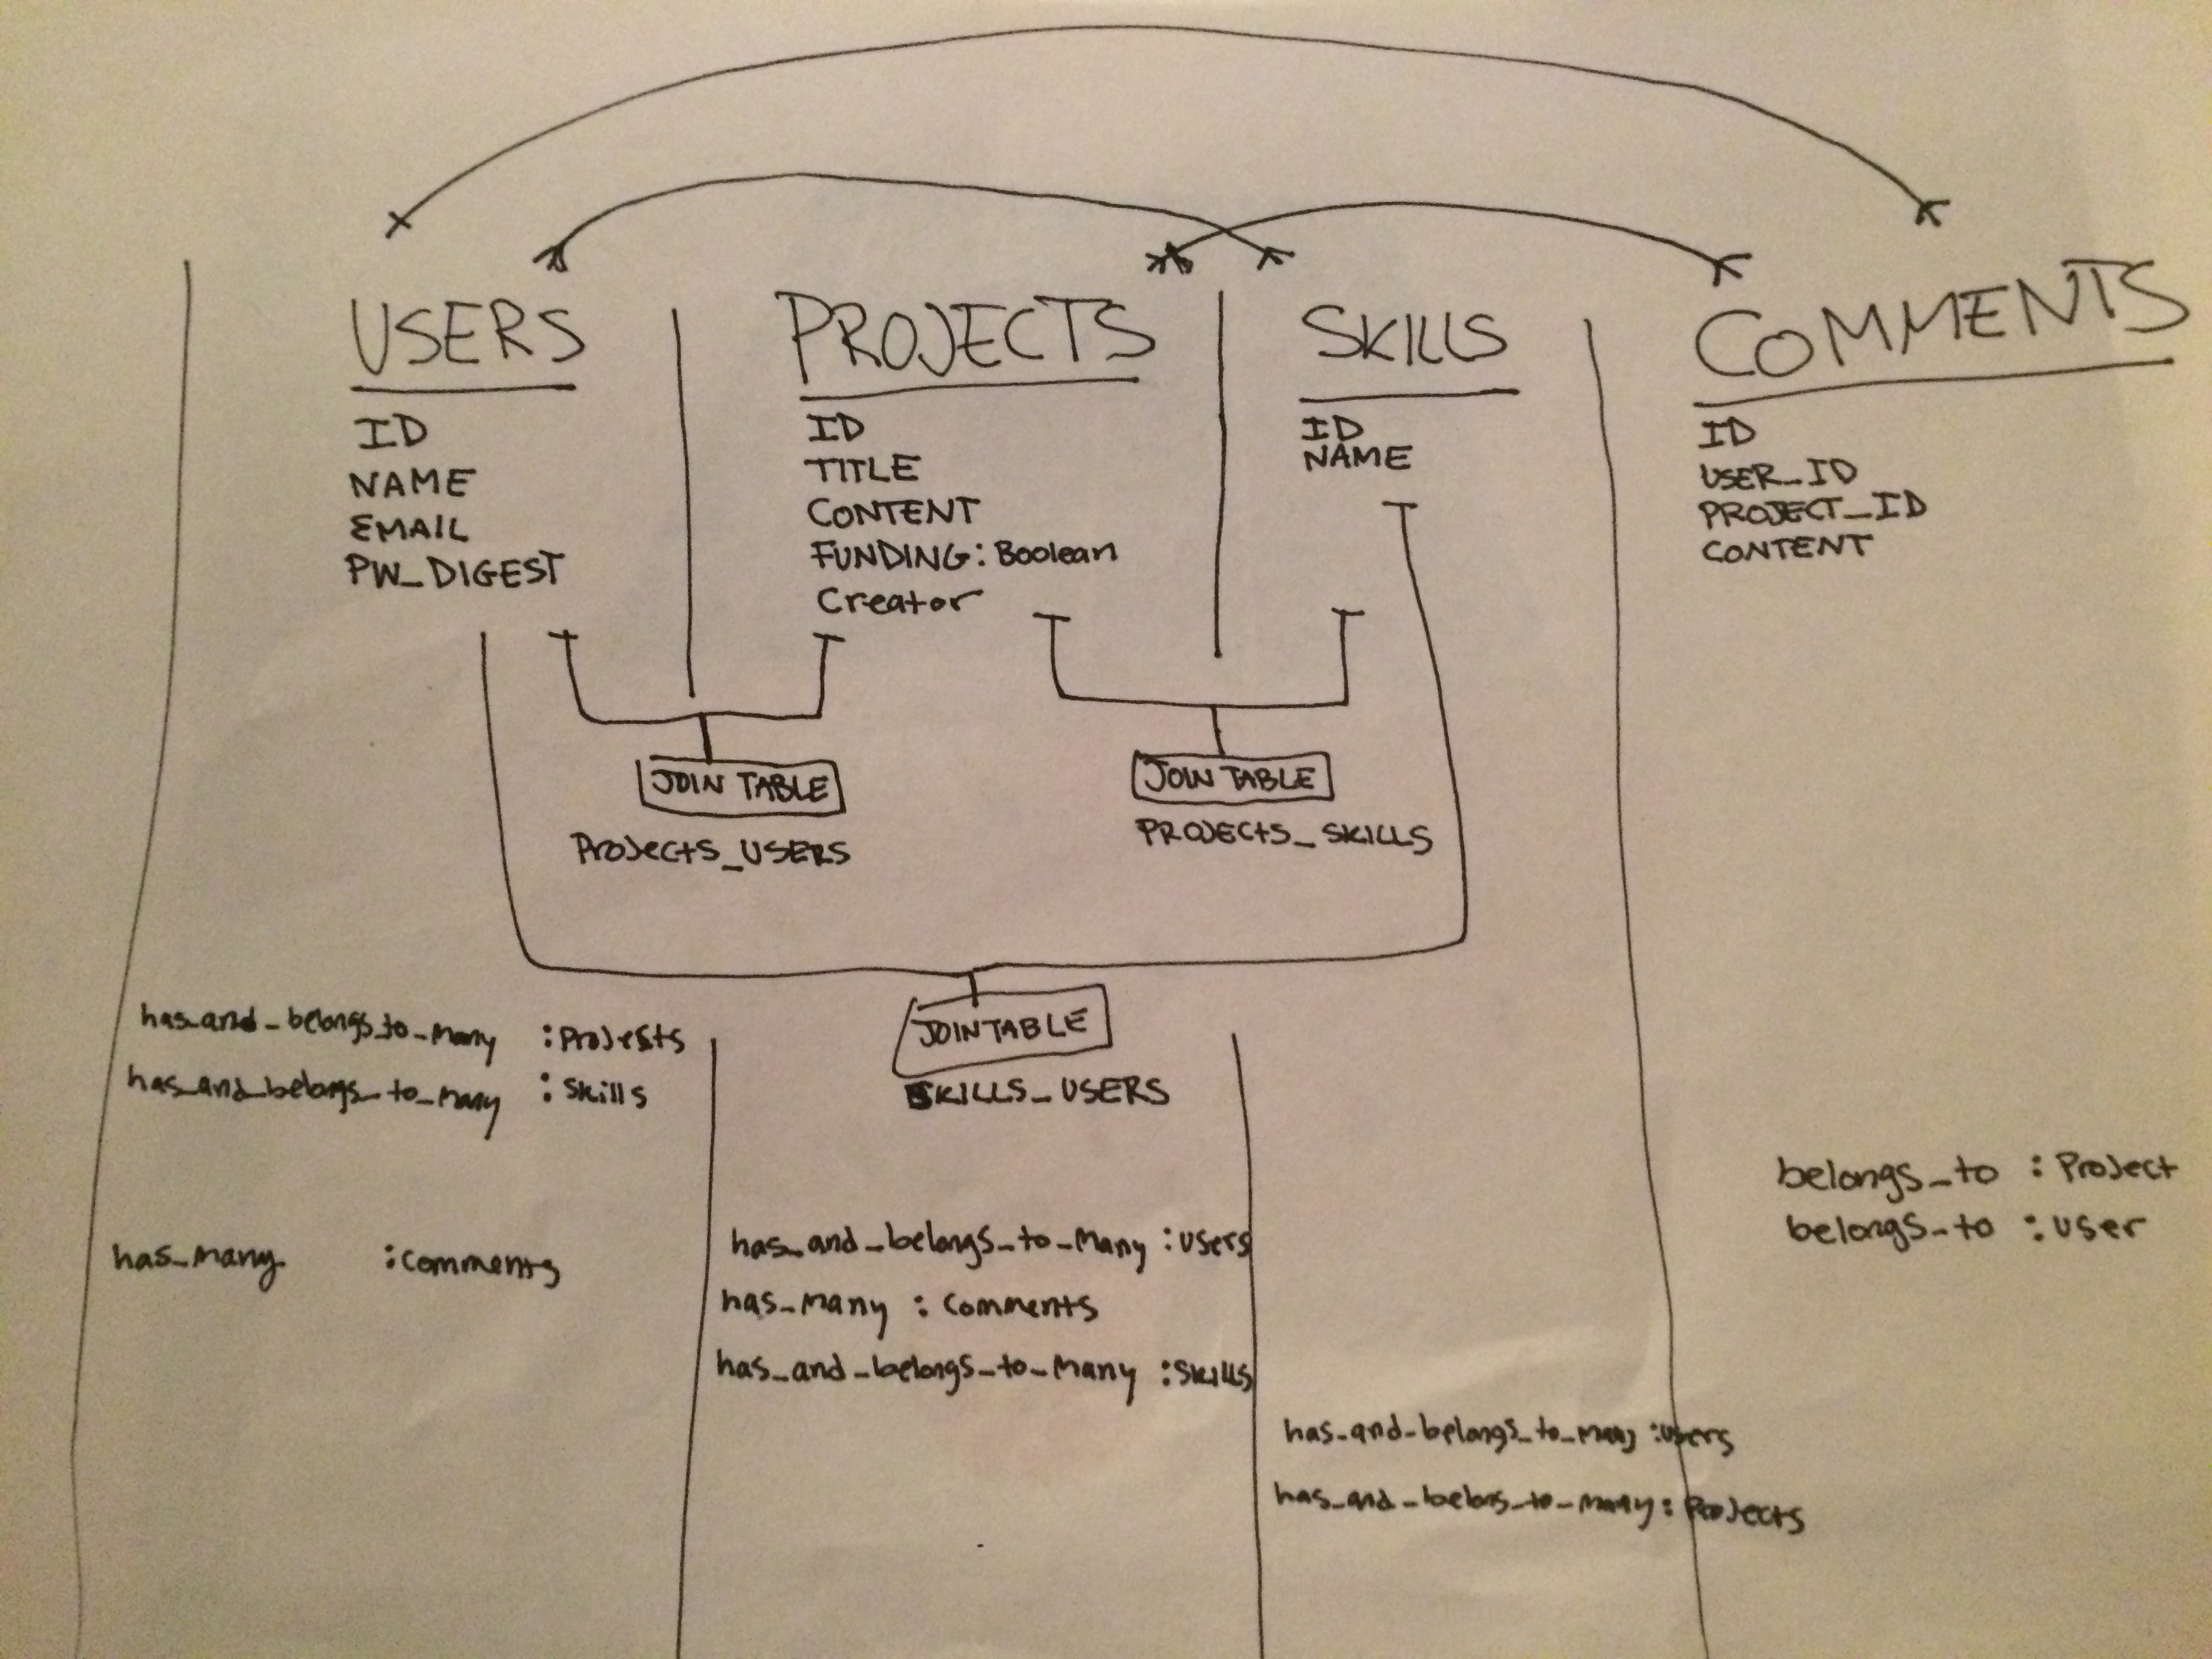 USERS
ID
NAME
EMAIL
PW_DIGEST
PROJECTS
ID
TITLE
CONTENT
FUNDING: Boolean
Creator
SKILLS
ID
NAME
COMMENTS
ID
USER_ID
PROJECT_ID
CONTENT
JOIN TABLE
Projects_USERS
JOIN TABLE
PROJECTS_SKILLS
JOIN TABLE
SKILLS_USERS
has_and_belongs_to_many :Projects
has_and_belongs_to_many :skills
has_many :comments
has_and_belongs_to_many :users
has_many : comments
has_and_belongs_to_many :skills
has_and_belongs_to_many :users
has_and_belons_to_many: Projects
belongs_to : Project
belongs_to : user